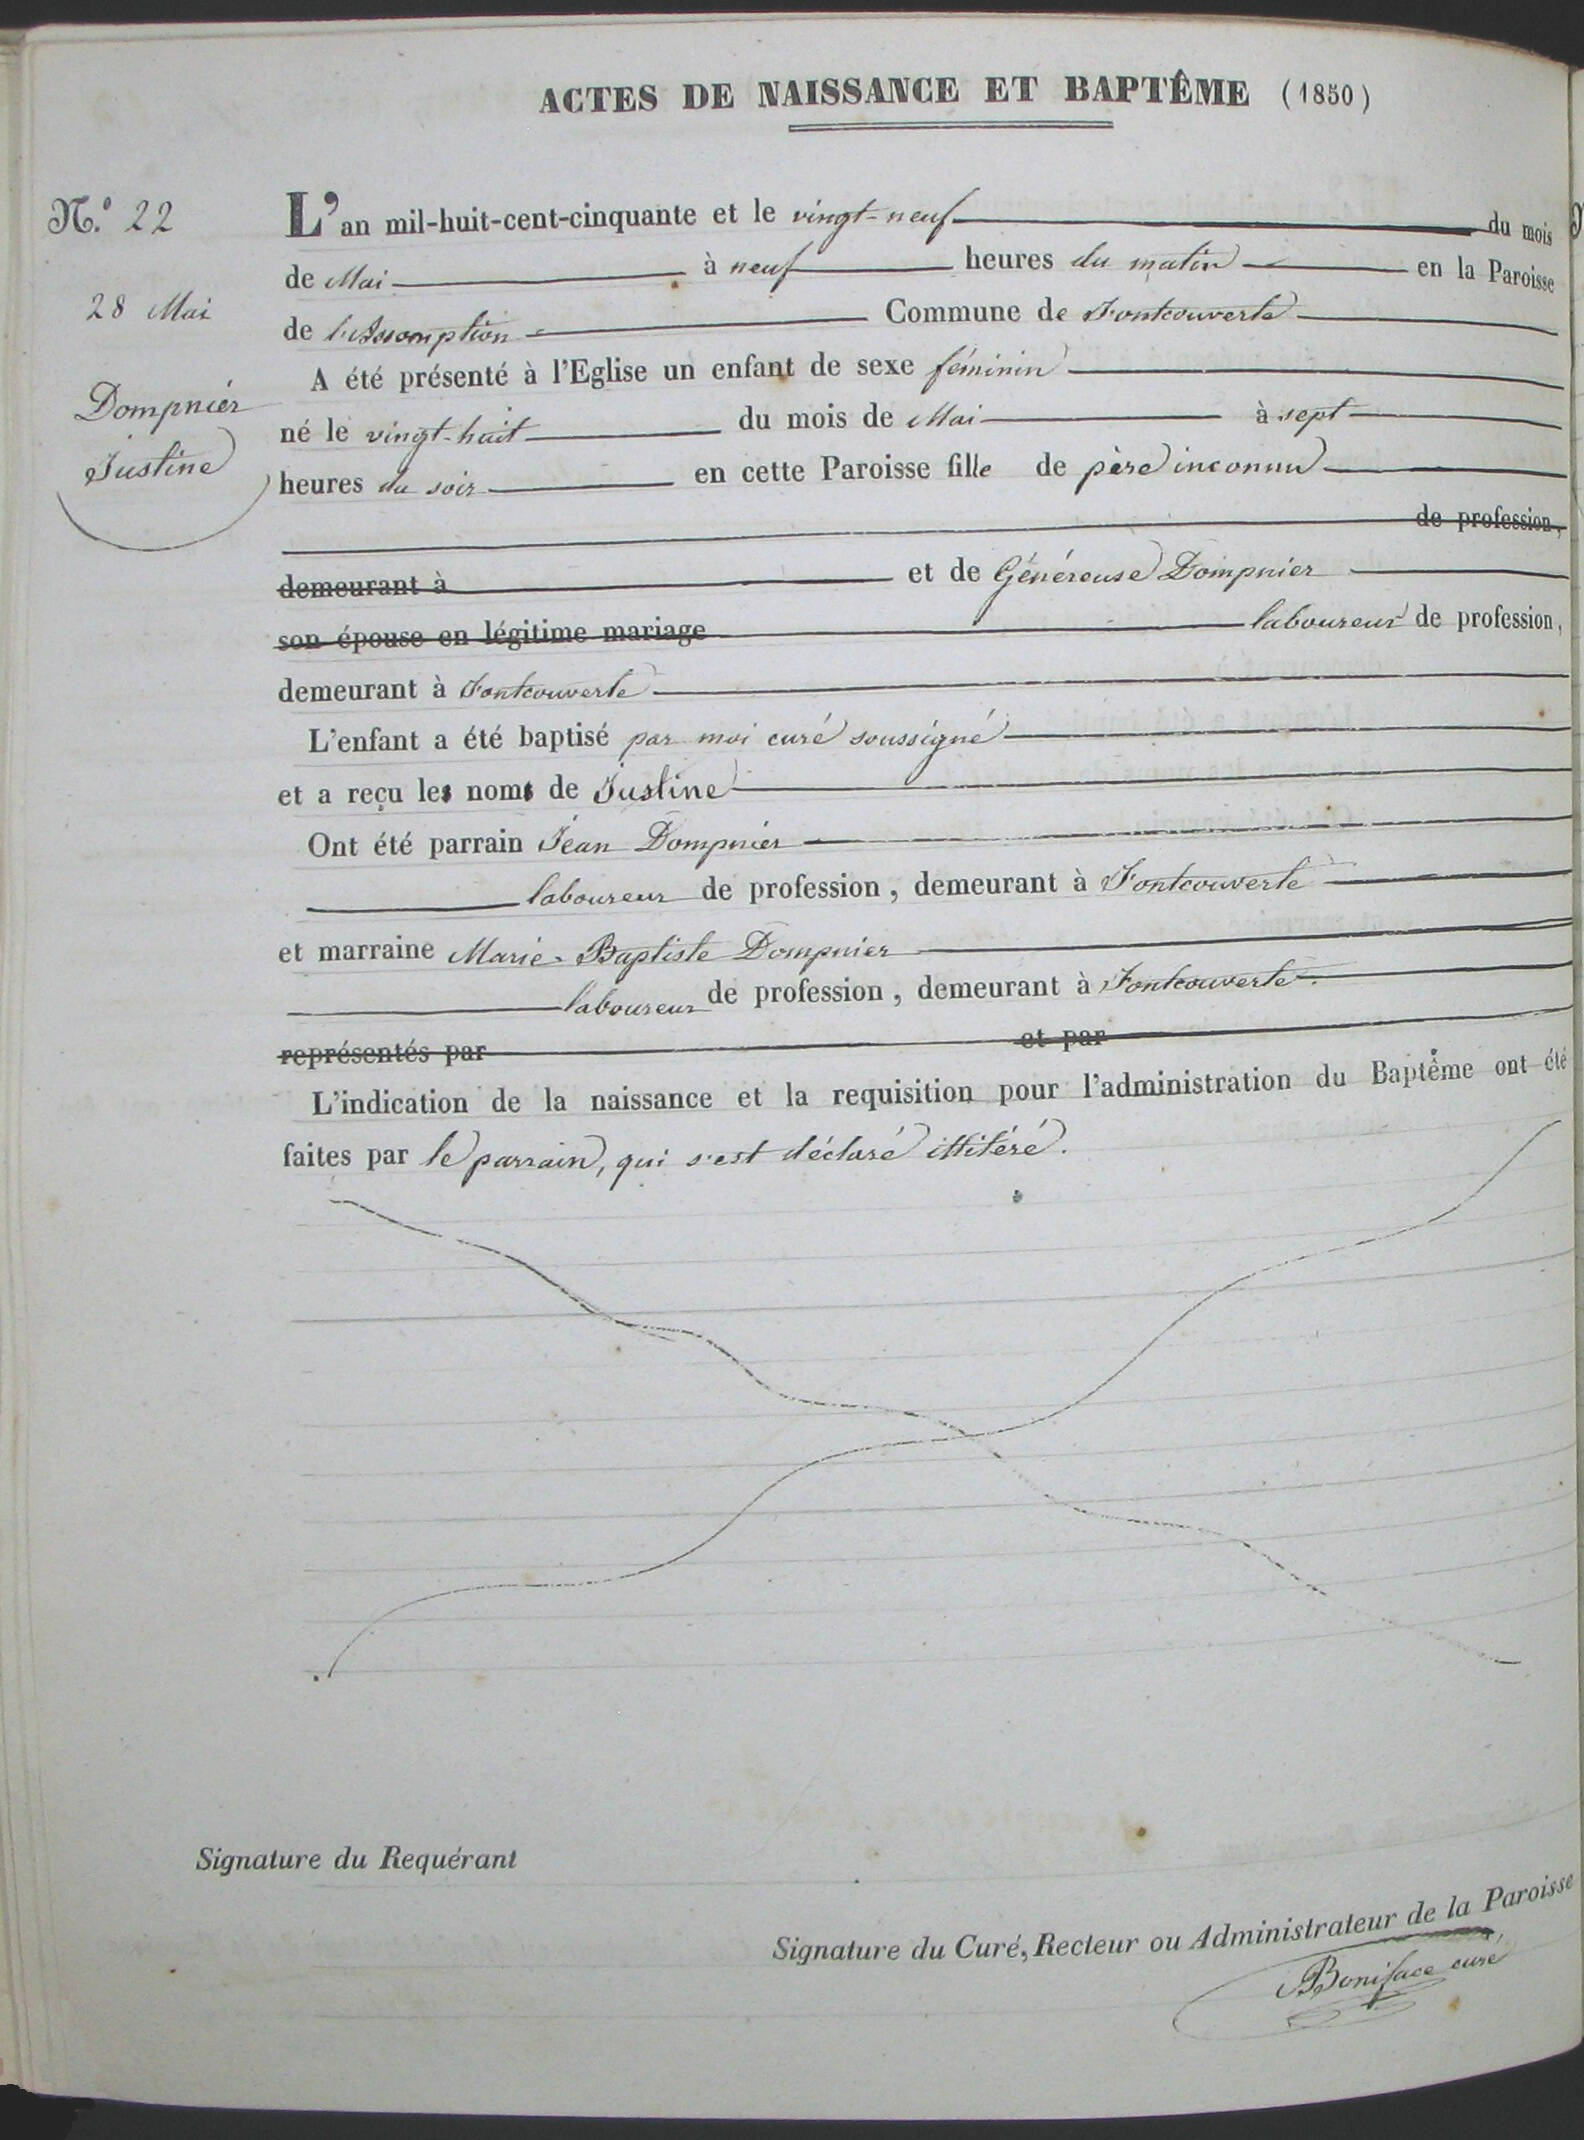 ACTES DE NAISSANCE ET BAPTÊME (1850)
N.º 22
28 Mai
Dompnier
Justine
L'an mil-huit-cent-cinquante et le vingt-neuf du mois
de Mai à neuf heures du matin en la Paroisse
de l'Assomption Commune de Fontcouverte
A été présenté à l'Eglise un enfant de sexe féminin
né le vingt-huit du mois de Mai à sept
heures du soir en cette Paroisse fille de père inconnu
de profession,
demeurant à et de Généreuse Dompnier
son épouse en légitime mariage laboureur de profession,
demeurant à Fontcouverte
L'enfant a été baptisé par moi curé soussigné
et a reçu les noms de Justine
Ont été parrain Jean Dompnier
laboureur de profession, demeurant à Fontcouverte
et marraine Marie-Baptiste Dompnier
laboureur de profession, demeurant à Fontcouverte.
représentés par et par
L'indication de la naissance et la requisition pour l'administration du Baptême ont été
faites par le parrain, qui s'est déclaré illitéré.
Signature du Requérant
Signature du Curé, Recteur ou Administrateur de la Paroisse
Boniface curé